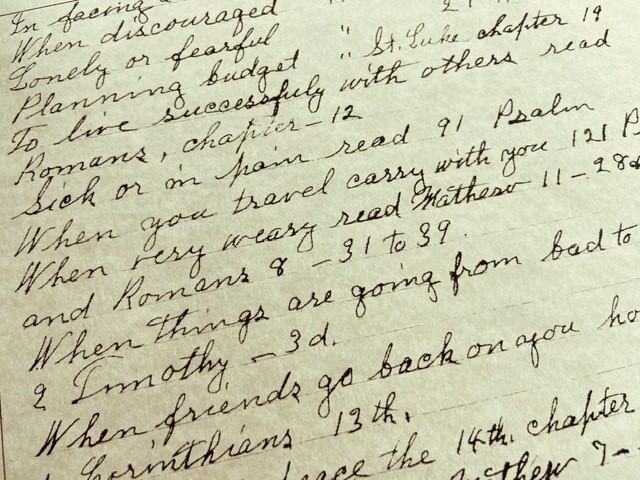 In facing a
When discouraged "
Lonely or fearful
Planning budget " St. Luke chapter 19
To live successfuly with others read
Romans, chapter - 12
Sick or in pain read 91 Psalm
When you travel carry with you 121 P
When very weary read Mathew 11 - 28
and Romans 8 - 31 to 39.
When things are going from bad to
2 Timothy - 3d.
When friends go back on you ho
Corinthians 13th.
the 14th. chapter
thew 7 -